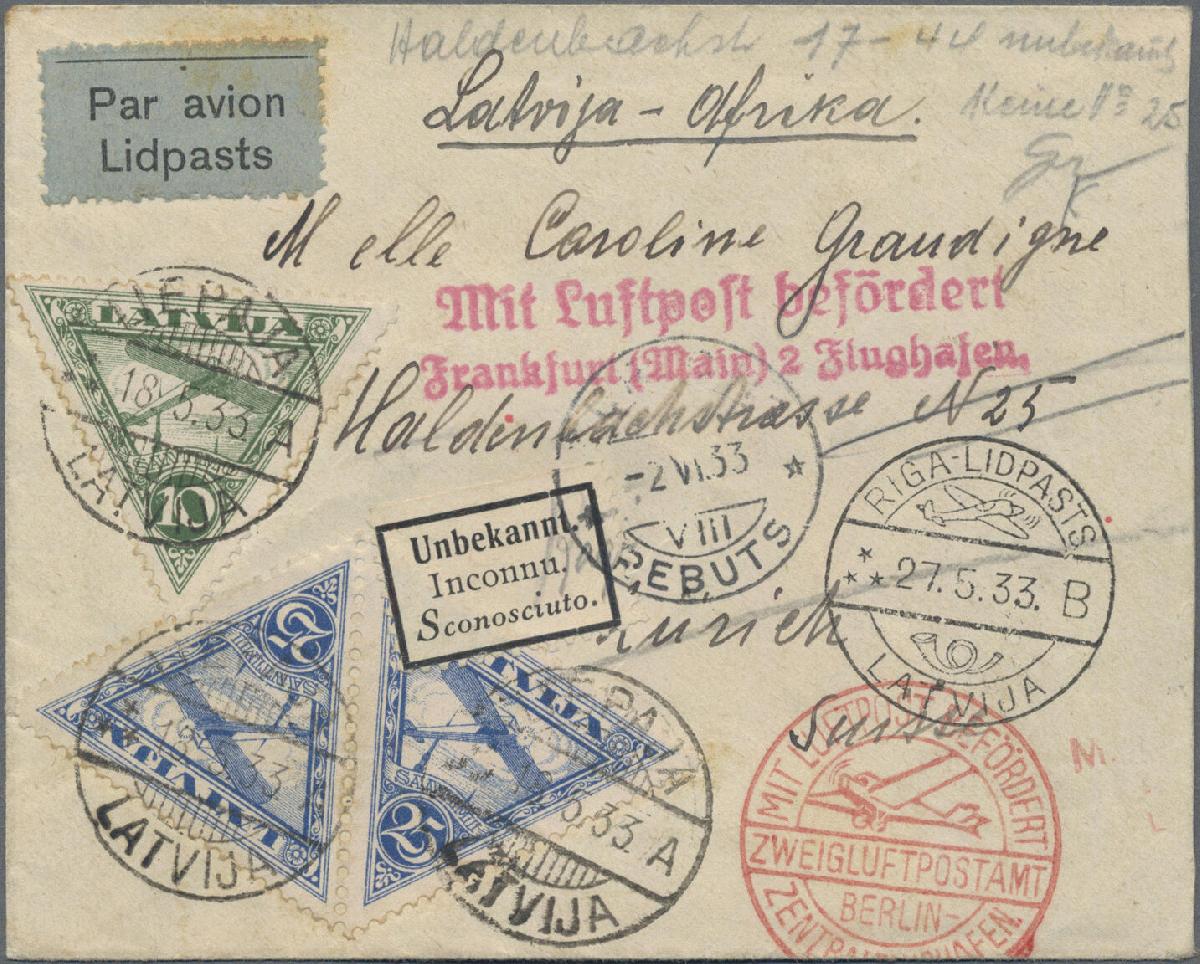 Haldenbachstr 17-44 unbekannt
Par avion
Lidpasts
Latvija - Afrika.
Keine No 25
Melle Caroline Graudigne
Mit Luftpost befördert
Frankfurt (Main) 2 Flughafen.
LATVIJA
LIEPAJA
18.5.33 A
LATVIJA
10
Haldenbachstrasse N 25
-2.VI.33
VIII
REBUTS
RIGA-LIDPASTS
27.5.33. B
LATVIJA
Unbekannt.
Inconnu.
Sconosciuto.
Zürich
Suisse
25
SANTIMI
LATVIJA
18.5.33
LATVIJA
LATVIJA
25
LIEPAJA
18.5.33 A
LATVIJA
MIT LUFTPOST BEFÖRDERT
ZWEIGLUFTPOSTAMT
BERLIN-
ZENTRALFLUGHAFEN.